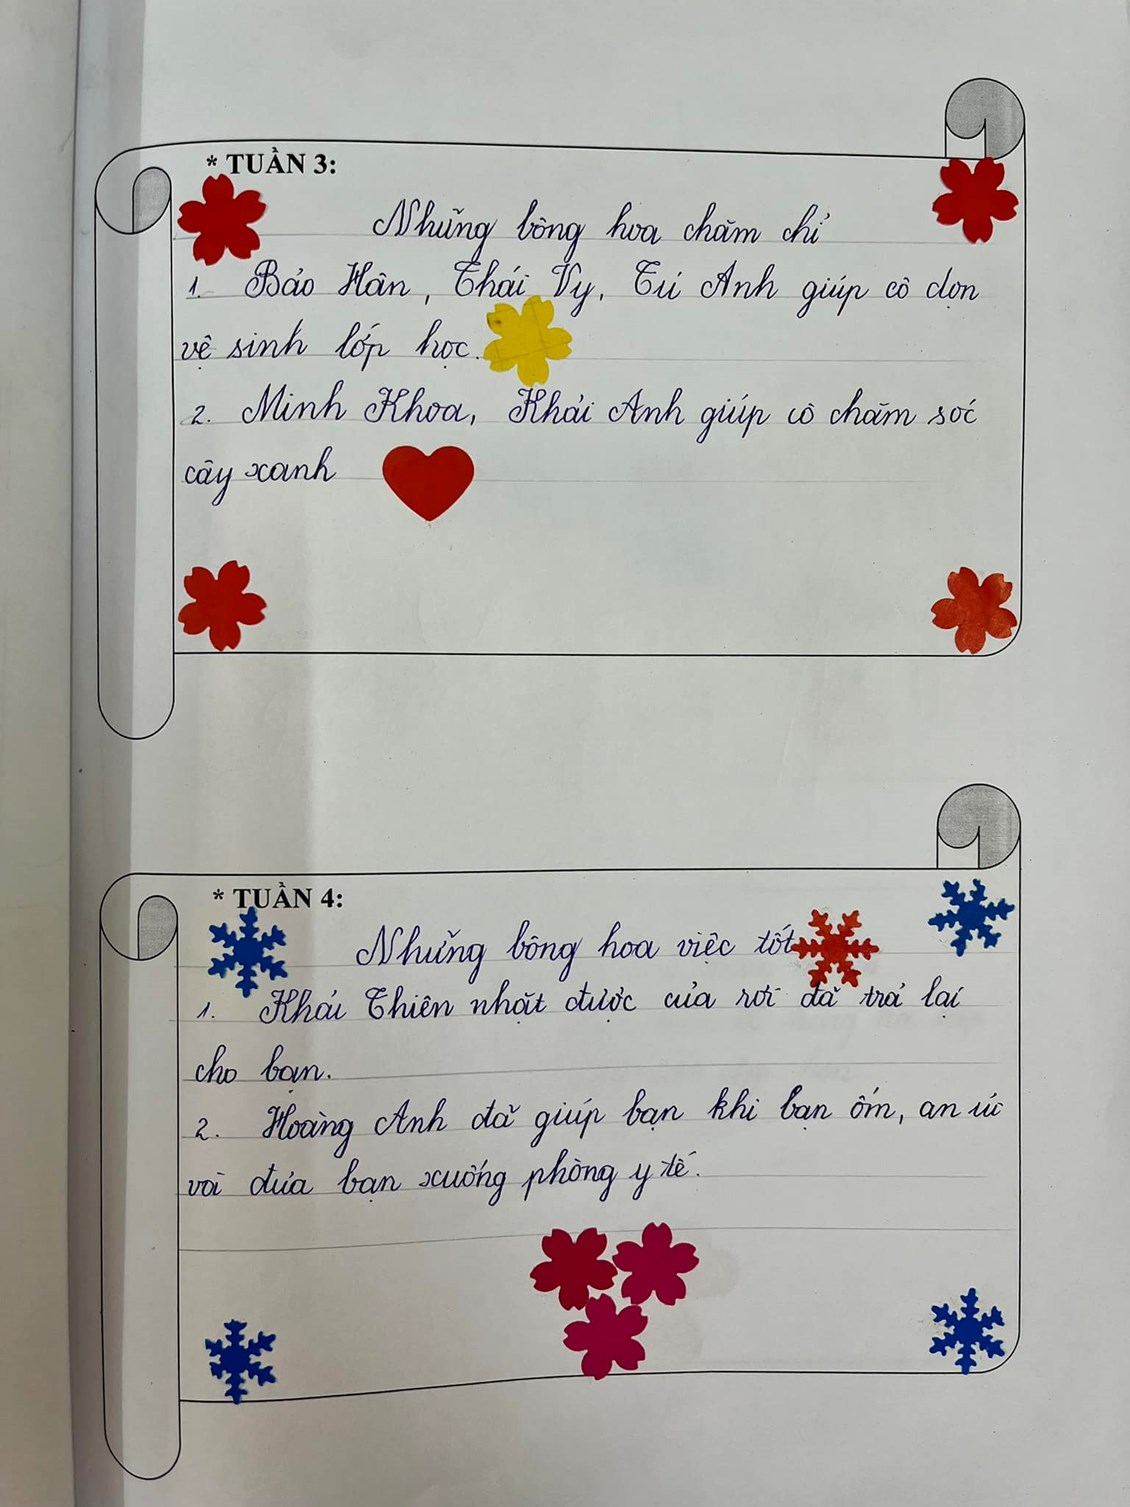 * TUẦN 3:
Những bông hoa chăm chỉ
1. Bảo Hân, Thái Vy, Tú Anh giúp cô dọn
vệ sinh lớp học.
2. Minh Khoa, Khải Anh giúp cô chăm sóc
cây xanh
* TUẦN 4:
Những bông hoa việc tốt
1. Khải Thiên nhặt được của rơi đã trả lại
cho bạn.
2. Hoàng Anh đã giúp bạn khi bạn ốm, an ủi
và đưa bạn xuống phòng y tế.